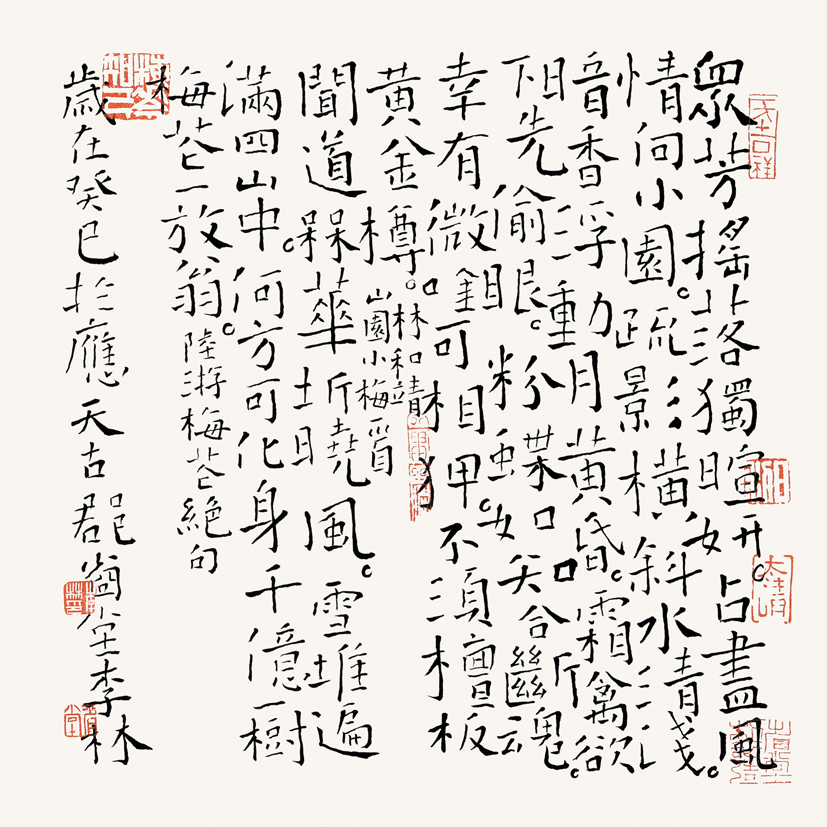 眾芳搖落獨暄妍。占盡風
情向小園。疏影橫斜水清淺。
暗香浮動月黃昏。霜禽欲
下先偷眼。粉蝶如知合斷魂。
幸有微吟可相狎。不須檀板
黃金樽。
林和靖
山園小梅
聞道梅華坼曉風。雪堆遍
滿四山中。何方可化身千億一樹
梅花一放翁。陸游梅花絕句
歲在癸巳於應天古郡堂李林